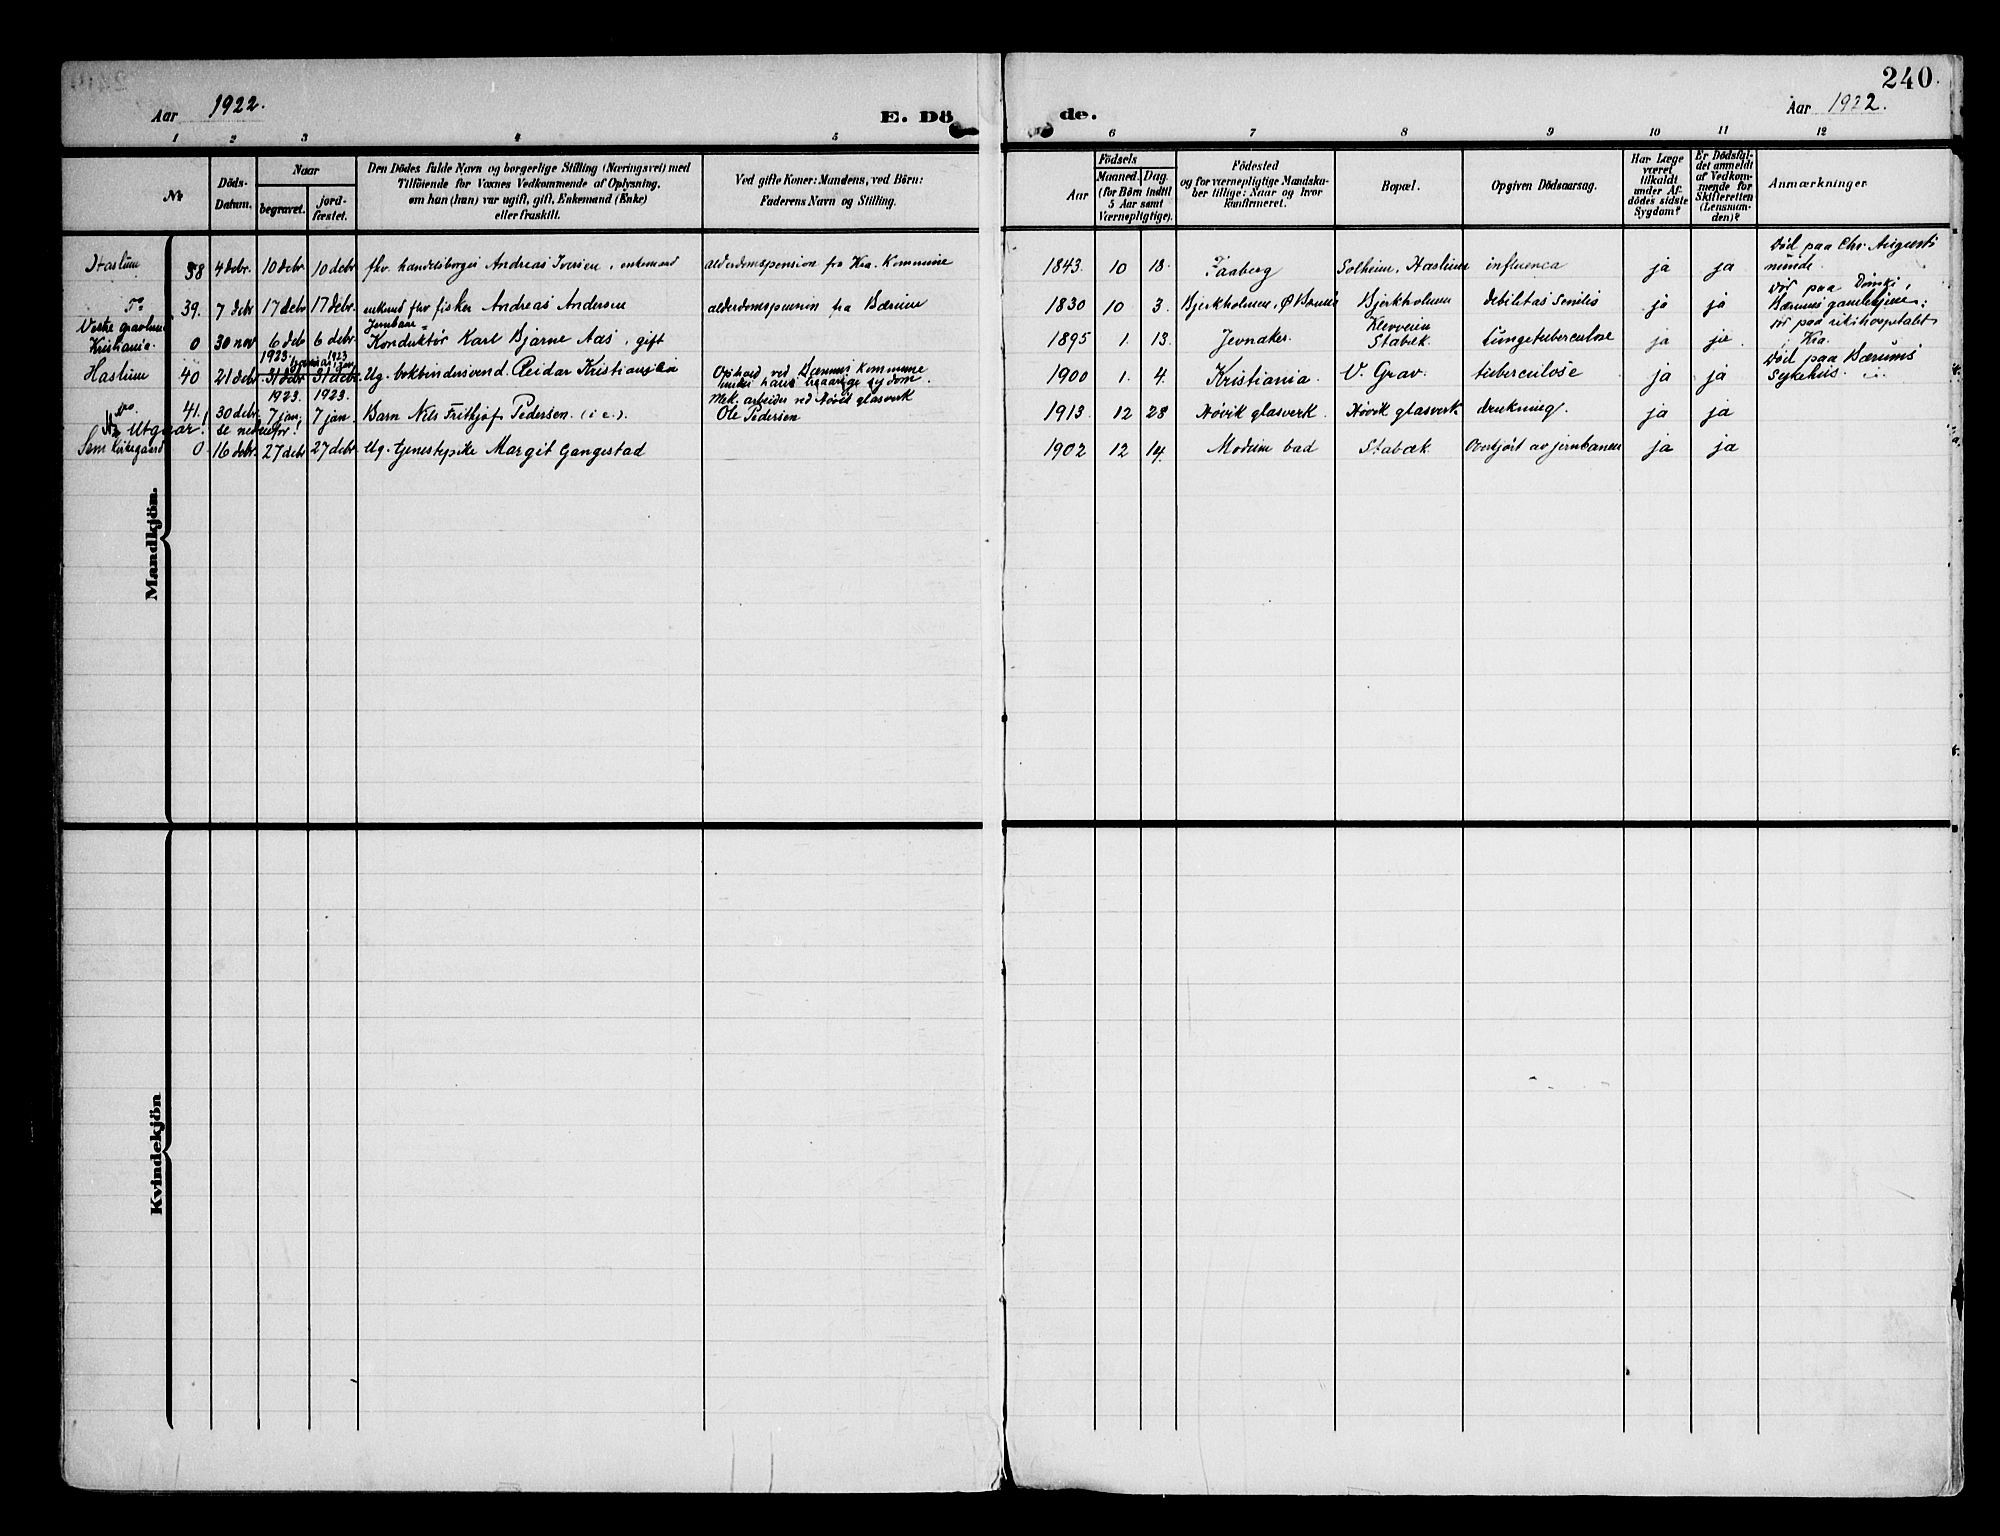 240.
Aar 1922.
E. Dö de.
Aar 1922.
1 2 3 4 5 6 7 8 9 10 11 12
№
Döds-Datum.
Naar
begravet.
jord-fæstet.
Den Dödes fulde Navn og borgerlige Stilling (Næringsvei) med
Tilföiende for Voxnes Vedkommende af Oplysning,
om han (hun) var ugift, gift, Enkemand (Enke)
eller fraskilt.
Ved gifte Koner: Mandens, ved Börn:
Faderens Navn og Stilling.
Födsels
Aar
Maaned. Dag.
(for Børn indtil
5 Aar samt
Værnepligtige).
Födested
og for værnepligtige Mandska-
ber tillige: Naar og hvor
konfirmeret.
Bopæl.
Opgiven Dödsaarsag.
Har Læge
været
tilkaldt
under Af-
dödes sidste
Sygdom?
Er Dödsfal-
det anmeldt
af Vedkom-
mende for
Skifteretten
(Lensman-
den)?
Anmærkninger
Haslum 38 4 debr. 10 debr 10 debr fhv. handelsborger Andreas Iversen, enkemand alderdomspension fra Kra. Kommune 1843 10 18. Faaberg Solheim, Haslum influenca ja ja Död paa Chr. Augusts minde.
Do 39. 7 debr 17 debr 17 debr. enkmd fhv fisker Andreas Andersen alderdomspension fra Bærum 1830 10 3. Bjerkholmen, Ø Bærum Bjerkholmen debilitas Senilis ja ja Bærums gamlehjem.
Vestre gravlund Kristiania. 0 30 nov 6 debr 6 debr. Jernbane-Konduktør Karl Bjarne Aas, gift 1895 1. 13. Jevnaker. Stabæk. Lungetuberculose ja ja paa rikshospitalet i Kra.
Haslum 40 21 debr. 31 debr 31 debr. 1923. 1923 Ug. bokbindersvend. Reidar Kristiansen Ophold ved Bærums Kommune under hans sygdom. 1900 1. 4. Kristiania. V. Grav. tuberculose ja ja Död paa Bærums Sykehus.
do. 41. 30 debr. 1923. 7 jan. 1923. 7 jan. Barn Nils Frithjof Pedersen. (i e). Mek. arbeider ved Høvik glasverk Ole Pedersen 1913. 12 28 Høvik glasverk. Høvik glasverk drukning. ja ja
Nr Utgaar! se nedenfor!
Sem kirkegaard 0 16 debr. 27 debr 27 debr. Ug. tjenestepike Margit Gangestad 1902 12 14. Modum bad Stabæk Overkjört av jernbanen ja ja
Mandkjön.
Kvindekjön